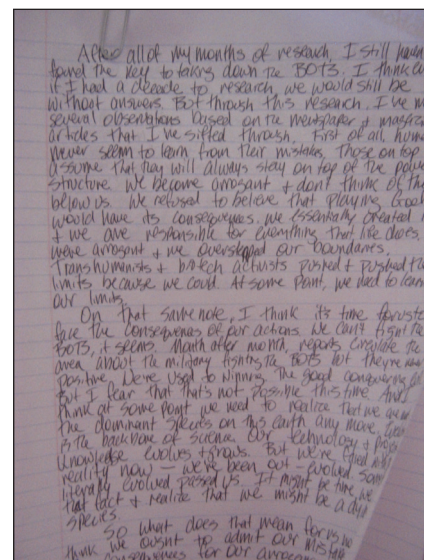 After all of my months of research, I still haven
found the key to taking down the BOTS. I think ev
if I had a decade to research, we would still be
without answers. But through this research, I've m
several observations based on the newspaper + magazi
articles that I've sifted through. First of all, huma
never seem to learn from their mistakes. Those on top
assume that they will always stay on top of the powe
structure. We become arrogant + don't think of th
below us. We refused to believe that playing God
would have its consequences. We essentially created
+ we are responsible for everything that life does.
were arrogant + we overstepped our boundaries.
Transhumanists + biotech activists pushed + pushed the
limits because we could. At some point, we need to learn
our limits.
On that same note, I think it's time for us to
face the consequences of our actions. We can't fight the
BOTS, it seems. Month after month, reports circulate the
area about the military fighting the BOTS but they're
positive. We're used to winning. The good conquering
But I fear that that's not possible this time. And I
think at some point we need to realize that we are
the dominant species on this earth any more.
is the backbone of science. Our technology +
knowledge evolves + grows. But we're
reality now — we've been out-evolved.
literally evolved passed us. It might be time we
that fact + realize that we might be a
species.
So what does that mean for us
think we ought to admit our
consequences for our arrogance